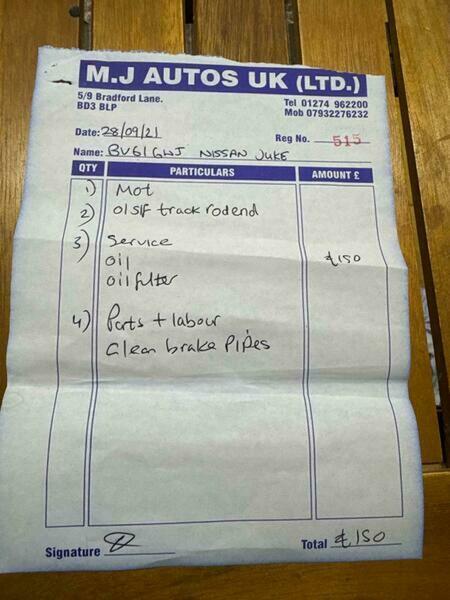 M.J AUTOS UK (LTD.)
5/9 Bradford Lane.
BD3 BLP
Tel 01274 962200
Mob 07932276232
Date: 28/09/21
Reg No. 515
Name: BV61GWJ NISSAN JUKE
QTY PARTICULARS AMOUNT £
1) Mot
2) O/S/F track rodend
3) Service
oil £150
oil filter
4) Parts + labour
Clean brake pipes
Signature
Total £150